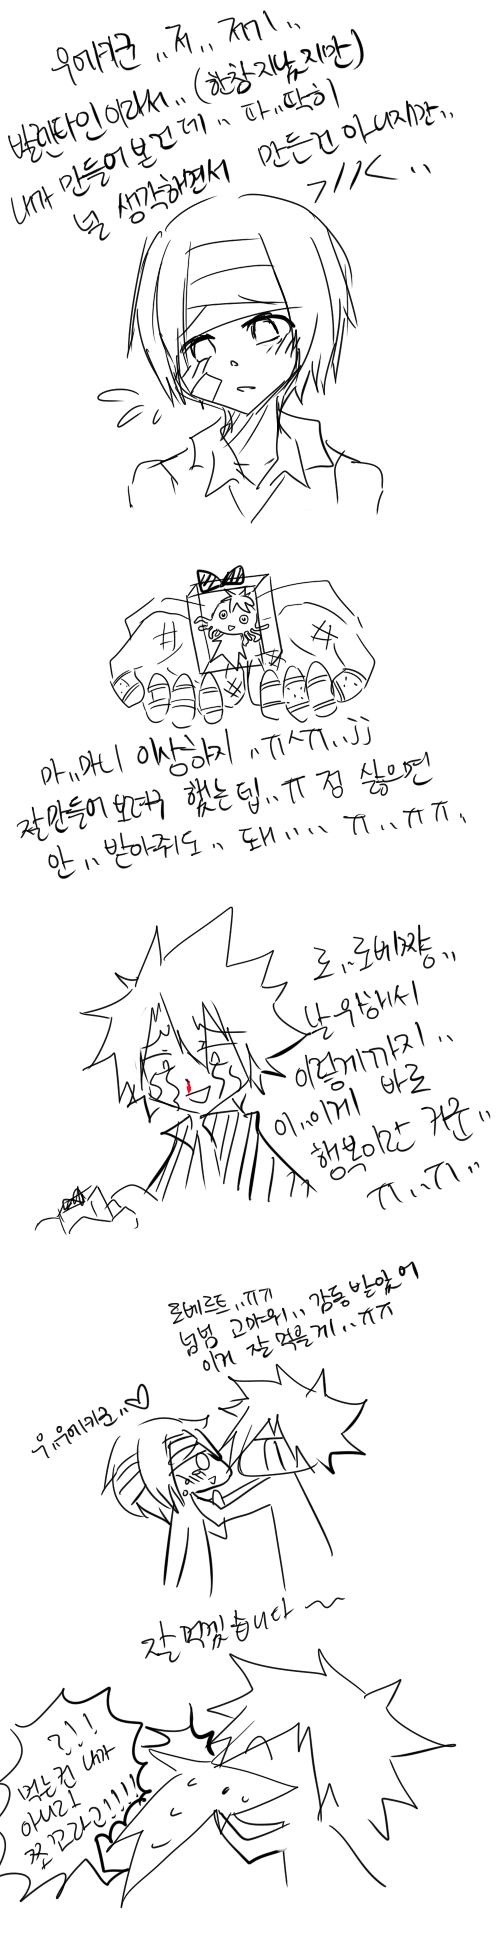 우에키군 ,,저,, 저기,,
발렌타인이라서..(한창지났지만)
내가 만들어 본건데,, 따..딱히
널 생각하면서 만든건 아니지만,,
>//< ,,
마,,마니 이상하지 ,,ㅠㅅㅠ..;;
잘만들어 보려구 했는뎁,,ㅠ 정 싫으면
안,, 받아줘도,, 돼.... ㅠ..ㅠㅠ,
로,,로베쨩,,
날위해서
이렇게까지,,
이..이게 바로
행복이란 거군,,
ㅠ..ㅠ,,
로베르트,,ㅠㅠ
넘넘 고마워,, 감동받았어
이거 잘먹을게,,ㅠㅠ
우,,우에키군,,♡
잘 먹겠습니다 ~
?!!
먹는건 내가
아니라
쪼꼬라고!!!!